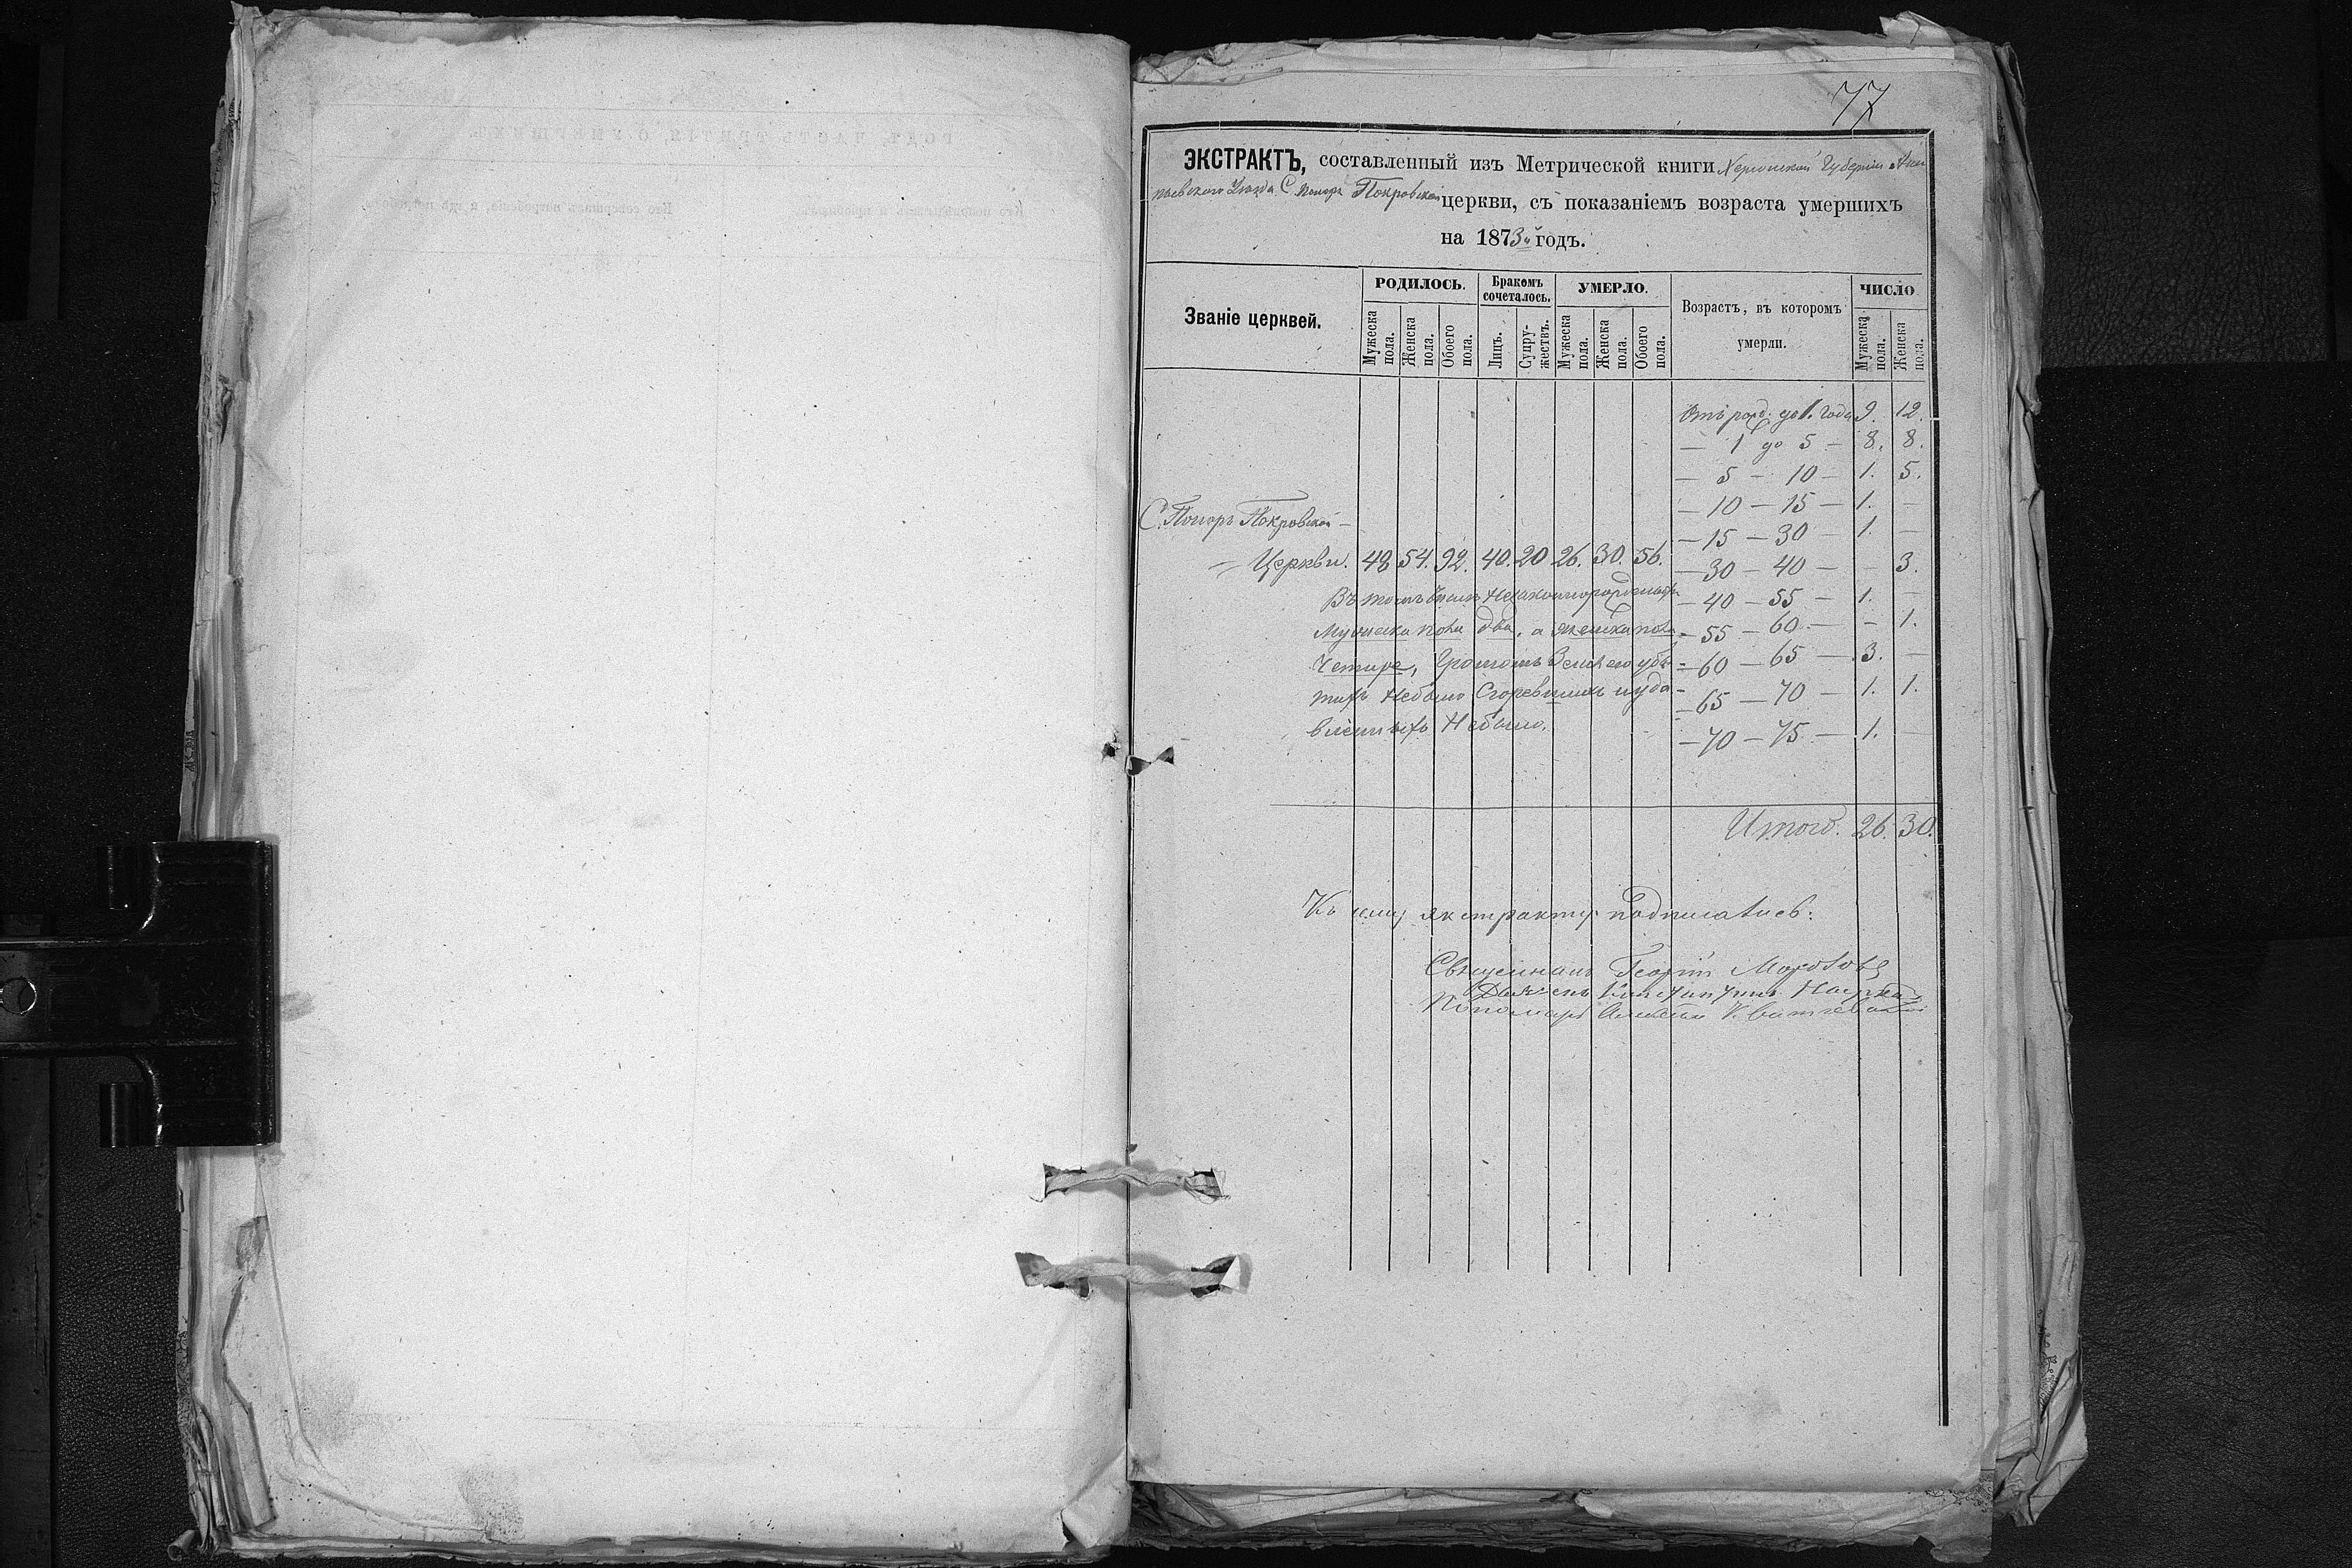 77
ЭКСТРАКТЪ, составленный изъ Метрической книги Херсонской Губерніи Анан
ьевского Уѣзда С. Покровской церкви, съ показаніемъ возраста умершихъ
на 1873й годъ.
Званіе церквей.
РОДИЛОСЬ.
Бракомъ сочеталось.
УМЕРЛО.
Возрастъ, въ которомъ умерли.
ЧИСЛО
Мужеска пола.
Женска пола.
Обоего пола.
Лицъ.
Супружествъ.
Мужеска пола.
Женска пола.
Обоего пола.
Мужеска пола.
Женска пола.
Отъ рожд. до 1. года 9. 12.
— 1 до 5 — 8. 8.
— 5 — 10 — 1. 5.
— 10 — 15 — 1. —
— 15 — 30 — 1. —
С. Покровской —
— Церкви. 48 54. 92. 40. 20 26. 30. 56.
— 30 — 40 — — 3.
Въ томъ числѣ незаконнорожденныхъ
— 40 — 55 — 1. —
Мужеска пола два, а женска пола
— 55 — 60 — — 1.
Четире, Громомъ
— 60 — 65 — 3. —
тыхъ небыло Сгоревшихъ и уда-
— 65 — 70 — 1. 1.
вленныхъ Небыло.
— 70 — 75 — 1. —
Итого. 26. 30.
Къ сему экстракту подписались:
Священникъ Георгій
Дьячекъ
Пономарь
ГОДЪ, ЧАСТЬ ТРЕТІЯ, О УМЕРШИХЪ.
Кто исповѣдывалъ и пріобщалъ.
Кто совершалъ погребеніе, и гдѣ погребены.